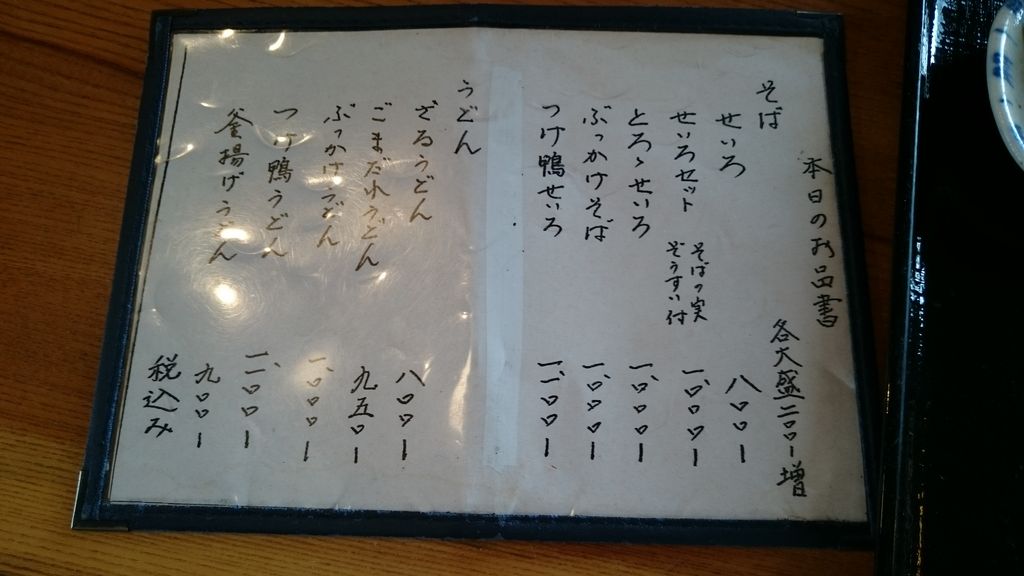 本日のお品書
各大盛二〇〇ー増
そば
せいろ 八〇〇ー
せいろセット そばの実ぞうすい付 一、〇〇〇ー
とろゝせいろ 一、〇〇〇ー
ぶっかけそば 一、〇〇〇ー
つけ鴨せいろ 一、一〇〇ー
うどん
ざるうどん 八〇〇ー
ごまだれうどん 九五〇ー
ぶっかけうどん 一、〇〇〇ー
つけ鴨うどん 一、一〇〇ー
釜揚げうどん 九〇〇ー
税込み